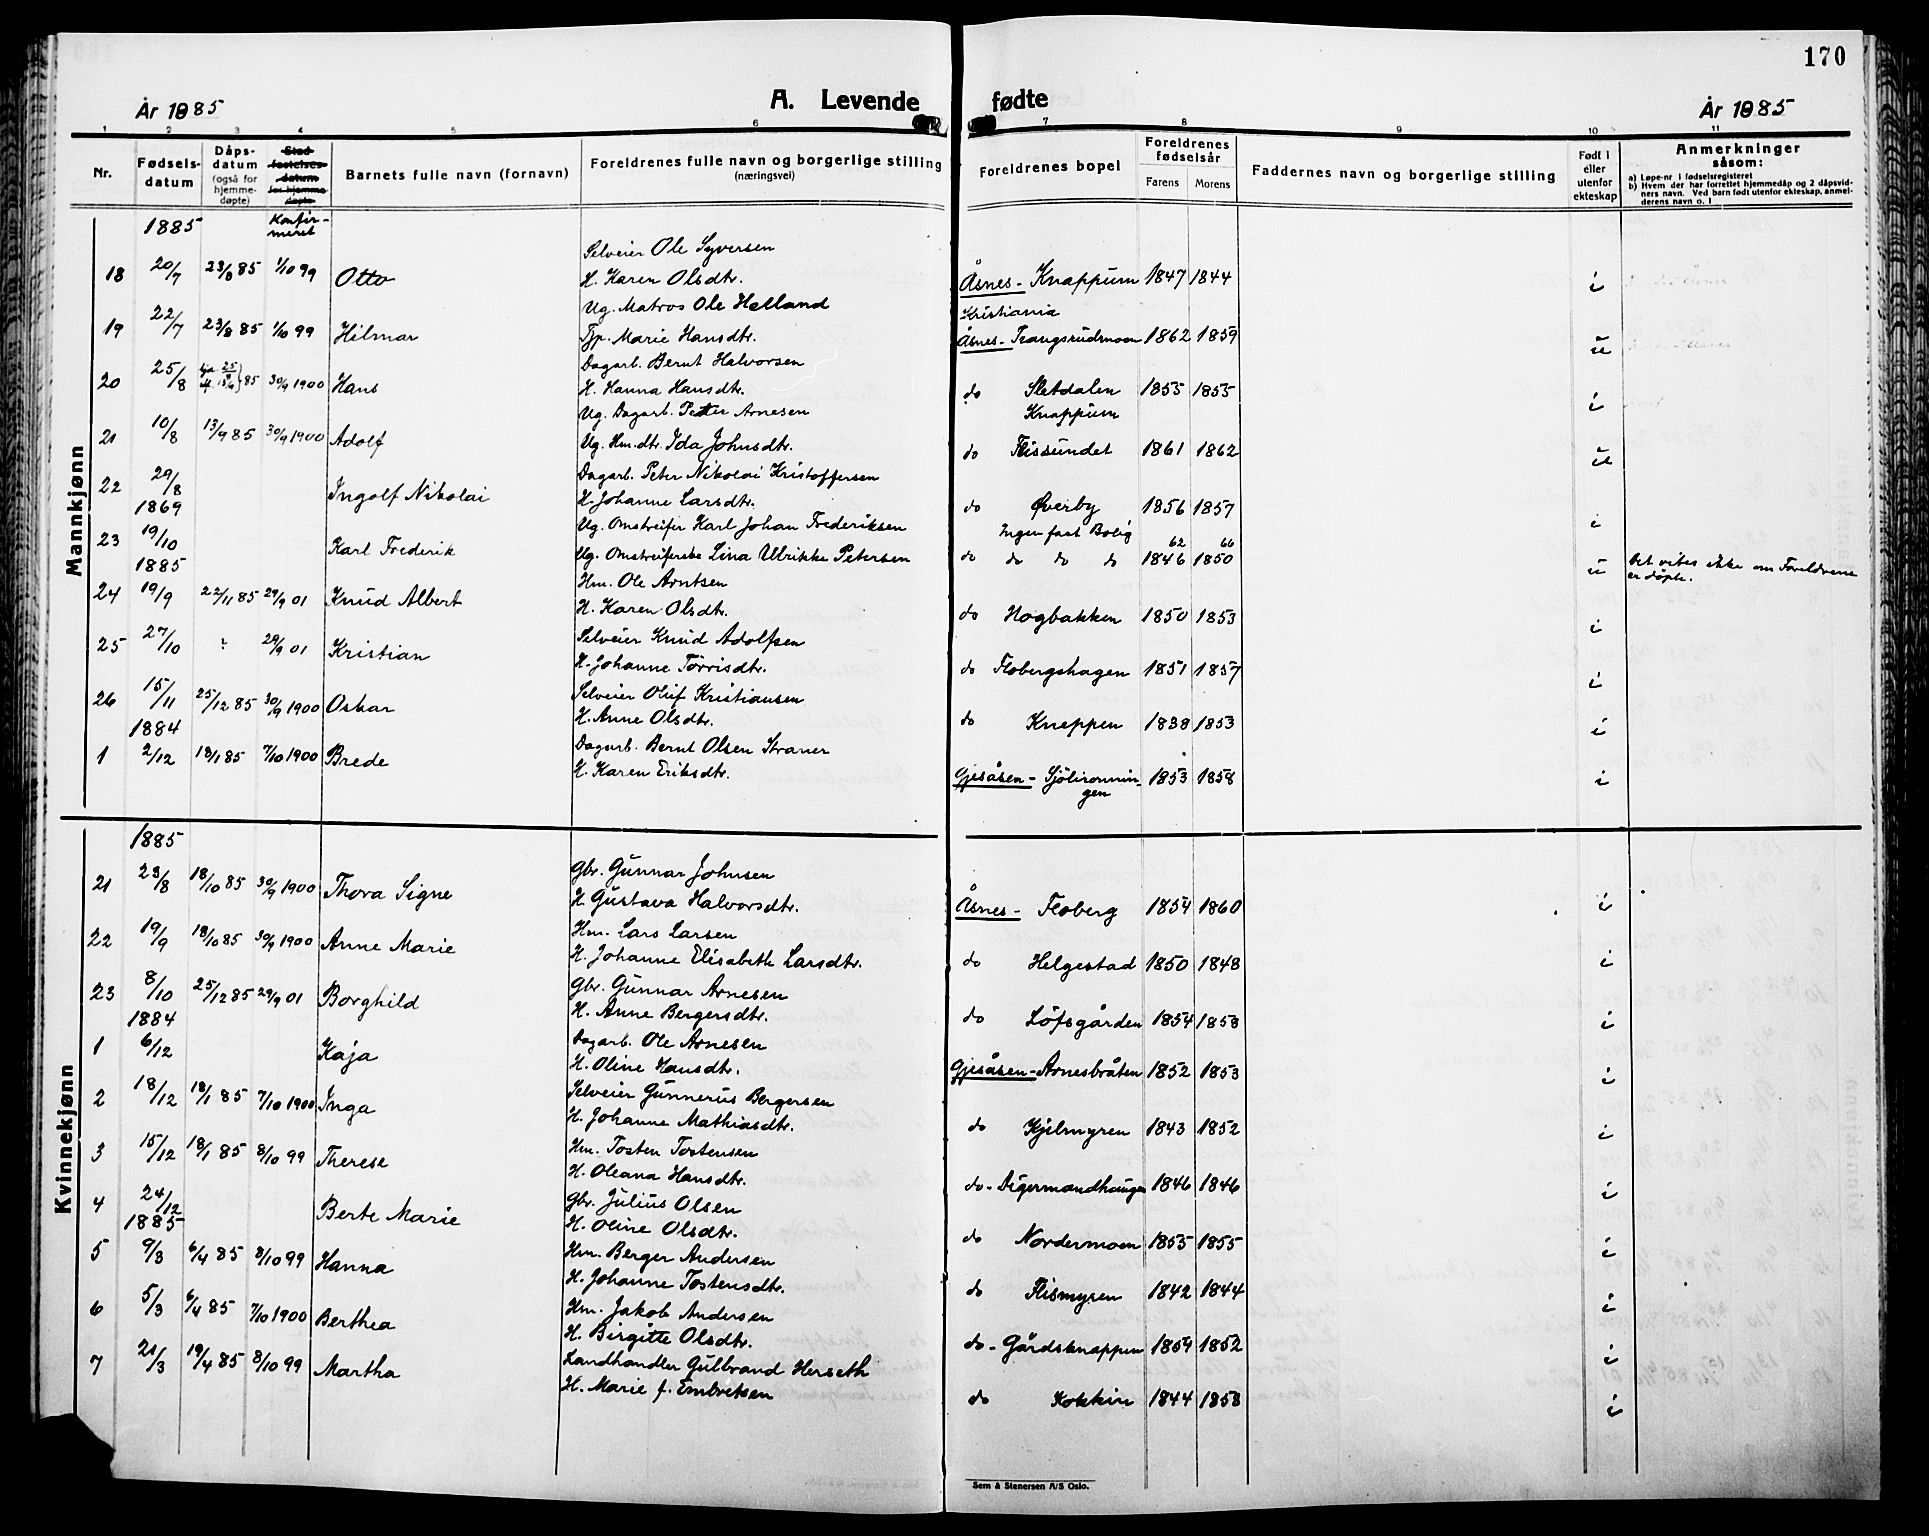 170
År 1885
A. Levende fødte
År 1885
1 2 3 4 5 6 7 8 9 10 11
Nr.
Fødsels-datum
Dåps-datum (også for hjemme-døpte)
Stad-festelses-datum for hjemme-døpte
Barnets fulle navn (fornavn)
Foreldrenes fulle navn og borgerlige stilling (næringsvei)
Foreldrenes bopel
Foreldrenes fødselsår
Farens Morens
Faddernes navn og borgerlige stilling
Født i eller utenfor ekteskap
Anmerkninger såsom:
a) Løpe-nr i fødselsregisteret
b) Hvem der har forrettet hjemmedåp og 2 dåpsvidners navn. Ved barn født utenfor ekteskap, anmelderens navn o. l
Konfirmeret
Mannkjønn
1885
Selveier Ole Syversen
18 20/7 23/8 85 1/10 99 Otto H. Karen Olsdtr. Åsnes - Knappum 1847 1844 i
Ug. Matros Ole Helland Kristiania
19 22/7 23/8 85 1/10 99 Hilmar Tjp. Marie Hansdtr. Åsnes - Trangsrudmoen 1862 1859 u
Dagarb. Bernt Halvorsen
20 25/8 85 30/9 1900 Hans H. Hanna Hansdtr. do Sletdalen 1855 1855 i
Ug. Dagarb. Petter Arnesen Knappum
21 10/8 13/9 85 30/9 1900 Adolf Ug. Hm.dtr. Ida Johnsdtr. do Flissundet 1861 1862 u
Dagarb. Peter Nikolai Kristoffersen
22 29/8 Ingolf Nikolai H. Johanne Larsdtr. do Øverby 1856 1857 i
1869
Ug. Omstreifer Karl Johan Frederiksen Ingen fast Bolig 62 66
23 19/10 Karl Frederik Ug. Omstreiferske Lina Ullrikke Petersen do do do do 1846 1850 u Det vites ikke om Foreldrene er døpte.
1885
Hm. Ole Arntsen
24 19/9 22/11 85 29/9 01 Knud Albert H. Karen Olsdtr. do Hogbakken 1850 1853 i
Selveier Knud Adolfsen
25 27/10 ? 29/9 01 Kristian H. Johanne Torrisdtr. do Flobergshagen 1851 1857 i
Selveier Oluf Kristiansen
26 15/11 25/12 85 30/9 1900 Oskar H. Anne Olsdtr. do Kneppen 1838 1853 i
1884
Dagarb. Bernt Olsen Straner
1 2/12 18/1 85 7/10 1900 Brede H. Karen Eriksdtr. Gjesåsen - Sjöliromningen 1853 1858 i
Kvinnekjønn
1885
Gbr. Gunnar Johnsen
21 23/8 18/10 85 30/9 1900 Thora Signe H. Gustava Halvorsdtr. Åsnes - Floberg 1854 1860 i
Hm. Lars Larsen
22 19/9 18/10 85 30/9 1900 Anne Marie H. Johanne Elisabeth Larsdtr. do Helgestad 1850 1848 i
Gbr. Gunnar Arnesen
23 8/10 25/12 85 29/9 01 Borghild H. Anne Bergersdtr. do Löfsgården 1854 1858 i
1884
Dagarb. Ole Arnesen
1 6/12 Kaja H. Oline Hansdtr. Gjesåsen - Arnesbråten 1852 1853 i
Selveier Gunnerus Bergersen
2 18/12 18/1 85 7/10 1900 Inga H. Johanne Mathiasdtr. do Kjelmyren 1843 1852 i
Hm. Tosten Tostensen
3 15/12 18/1 85 8/10 99 Therese H. Oleana Hansdtr. do - Digermandhaugen 1846 1846 i
Gbr. Julius Olsen
4 24/12 Berte Marie H. Oline Olsdtr. do Nordermoen 1855 1855 i
1885
Hm. Berger Andersen
5 9/3 6/4 85 8/10 99 Hanna H. Johanne Tostensdtr. do Flismyren 1842 1844 i
Hm. Jakob Andersen
6 5/3 6/4 85 7/10 1900 Berthea H. Birgitte Olsdtr. do - Gårdsknappen 1854 1852 i
Landhandler Gulbrand Herseth
7 21/3 19/4 85 8/10 99 Martha H. Marie f. Embretsen do Kokkin 1844 1858 i
Sem & Stenersen A/S Oslo.